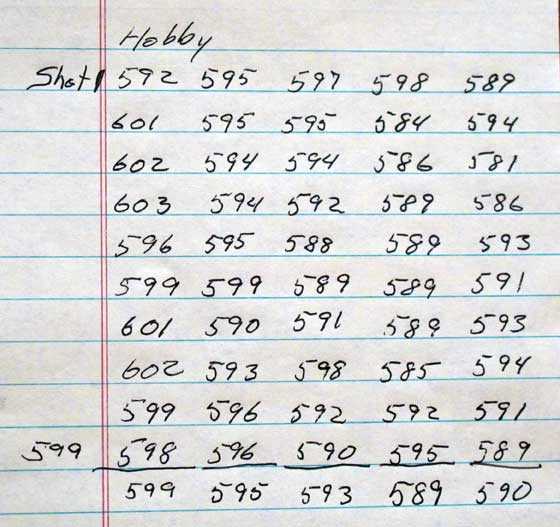 Hobby
Shot 1 592 595 597 598 589
601 595 595 584 594
602 594 594 586 581
603 594 592 589 586
596 595 588 589 593
599 599 589 589 591
601 590 591 589 593
602 593 598 585 594
599 596 592 592 591
599 598 596 590 595 589
599 595 593 589 590